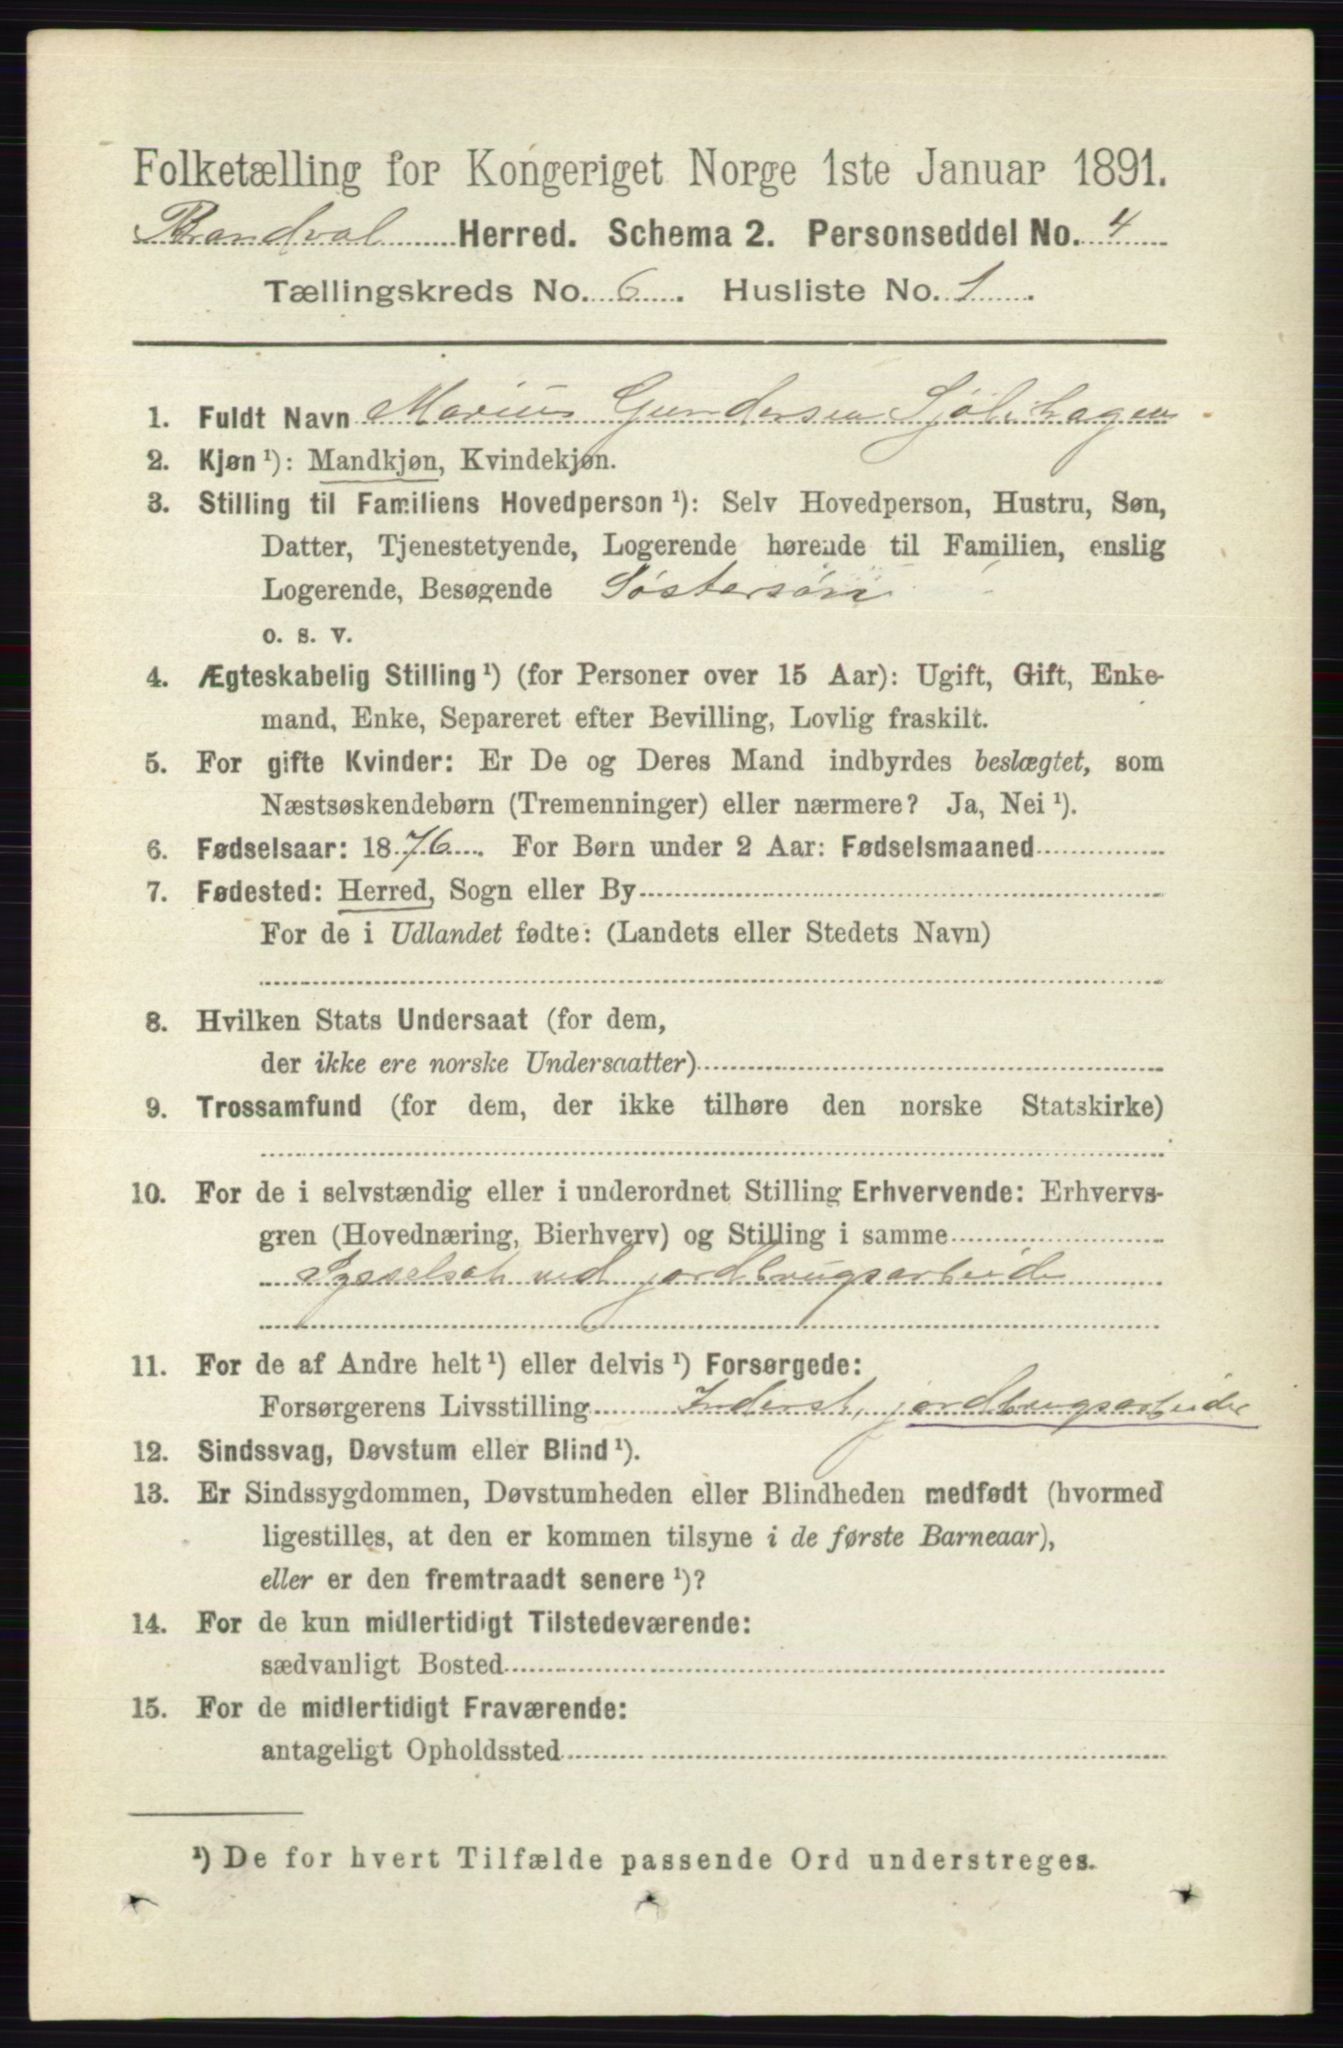 Folketælling for Kongeriget Norge 1ste Januar 1891.
Brandval Herred. Schema 2. Personseddel No. 4
Tællingskreds No. 6. Husliste No. 1.
1. Fuldt Navn Marius Gundersen Sjølihagen
2. Kjøn ¹): Mandkjøn, Kvindekjøn.
3. Stilling til Familiens Hovedperson ¹): Selv Hovedperson, Hustru, Søn,
Datter, Tjenestetyende, Logerende hørende til Familien, enslig
Logerende, Besøgende Søstersøn
o. s. v.
4. Ægteskabelig Stilling ¹) (for Personer over 15 Aar): Ugift, Gift, Enke-
mand, Enke, Separeret efter Bevilling, Lovlig fraskilt.
5. For gifte Kvinder: Er De og Deres Mand indbyrdes beslægtet, som
Næstsøskendebørn (Tremenninger) eller nærmere? Ja, Nei ¹).
6. Fødselsaar: 1876. For Børn under 2 Aar: Fødselsmaaned
7. Fødested: Herred, Sogn eller By
For de i Udlandet fødte: (Landets eller Stedets Navn)
8. Hvilken Stats Undersaat (for dem,
der ikke ere norske Undersaatter)
9. Trossamfund (for dem, der ikke tilhøre den norske Statskirke)
10. For de i selvstændig eller i underordnet Stilling Erhvervende: Erhvervs-
gren (Hovednæring, Bierhverv) og Stilling i samme
Sysselsat ved jordbrugsarbeide
11. For de af Andre helt ¹) eller delvis ¹) Forsørgede:
Forsørgerens Livsstilling Inderst, jordbrugsarbeider
12. Sindssvag, Døvstum eller Blind ¹).
13. Er Sindssygdommen, Døvstumheden eller Blindheden medfødt (hvormed
ligestilles, at den er kommen tilsyne i de første Barneaar),
eller er den fremtraadt senere ¹)?
14. For de kun midlertidigt Tilstedeværende:
sædvanligt Bosted
15. For de midlertidigt Fraværende:
antageligt Opholdssted
¹) De for hvert Tilfælde passende Ord understreges.